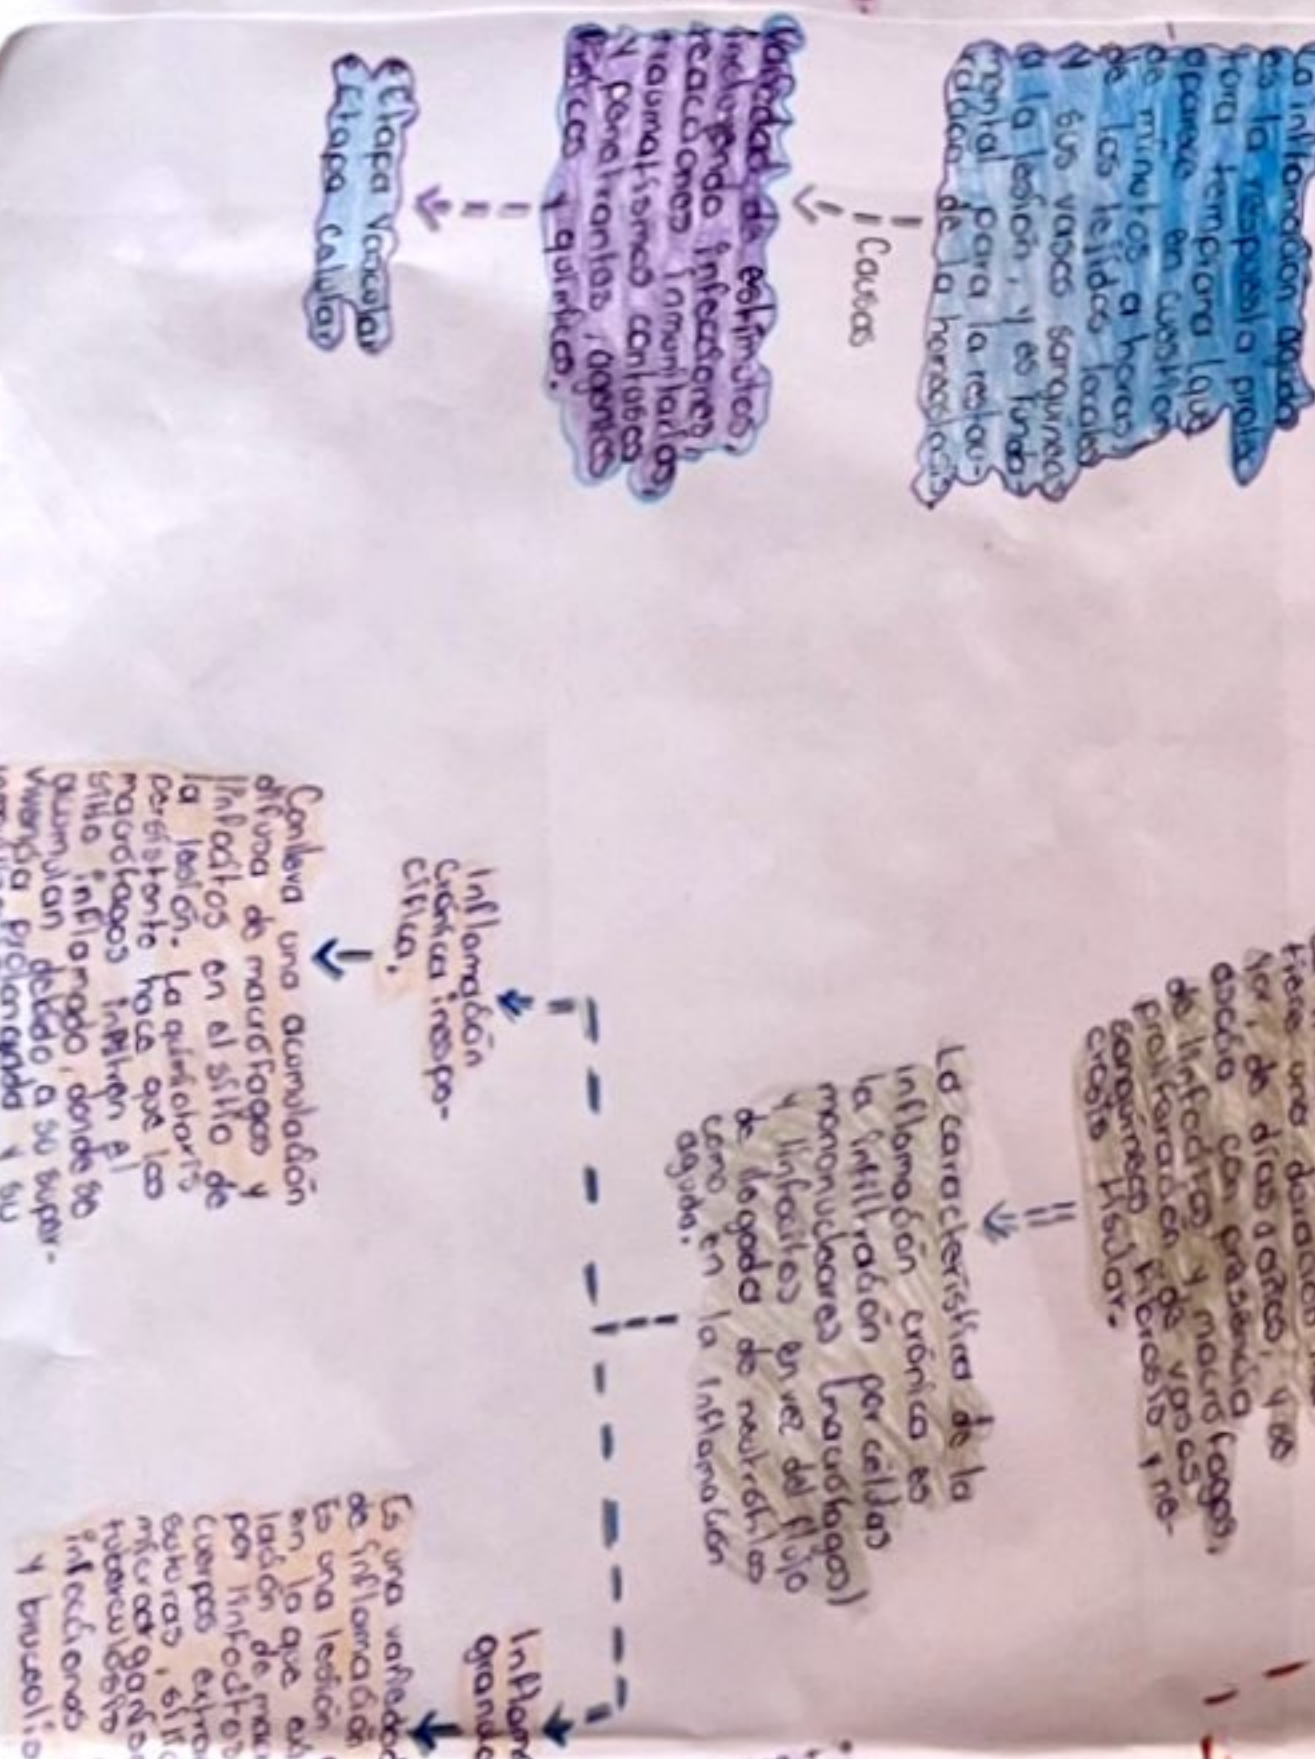 La inflamación aguda
es la respuesta
tora temprana
aparece en cuestión
de minutos a horas
de los tejidos locales
y sus vasos sanguíneos
a la lesión, y es funda-
mental para la restau-
ración de la
Causas
Variedad de estímulos,
incluyendo infecciones,
reacciones inmunitarias,
traumatismos contusos
y penetrantes, agentes
físicos y químicos.
Etapa Vascular
Etapa Celular
de días a años, y se
asocia con presencia
de linfocitos y macrófagos,
proliferación de vasos
sanguíneos, fibrosis y ne-
crosis tisular.
La característica de la
inflamación crónica es
la infiltración por células
mononucleares (macrófagos)
y linfocitos en vez del flujo
de llegada de neutrófilos
como en la inflamación
aguda.
Inflamación
crónica inespe-
cífica.
Conlleva una acumulación
difusa de macrófagos y
linfocitos en el sitio de
la lesión. La quimiotaxis
persistente hace que los
macrófagos infiltren el
sitio inflamado, donde se
acumulan debido a su super-
vivencia prolongada y su
Inflam
granu
Es una variedad
de inflamación
Es una lesión
en la que
lación de mac
por linfocitos
cuerpos extra
suturas,
microorganis
tuberculosis
infecciones
y